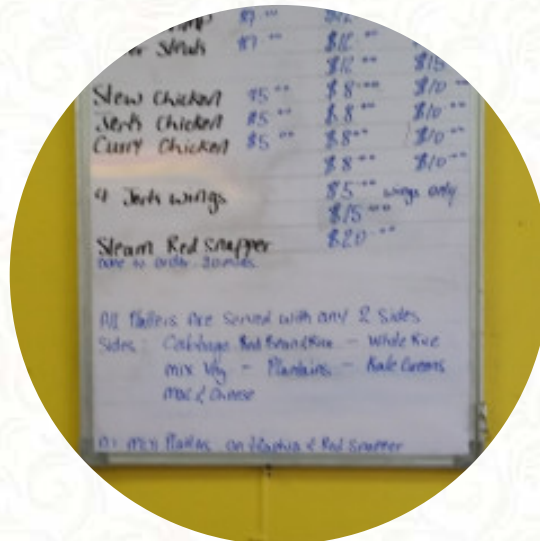 $7.00 $12
Steak $7.00 $12.00
$12.00 $15
Stew Chicken $5.00 $8.00 $10.00
Jerk Chicken $5.00 $8.00 $10.00
Curry Chicken $5.00 $8.00 $10.00
$8.00 $10.00
4 Jerk wings $5.00 wings only
$15.00
Steam Red Snapper $20.00
order 20 mins
All Platters Are Served with any 2 Sides
Sides: Cabbage Red Bean & Rice - White Rice
mix Veg - Plantains - Kale Greens
Mac & Cheese
mix Platters on & Red Snapper